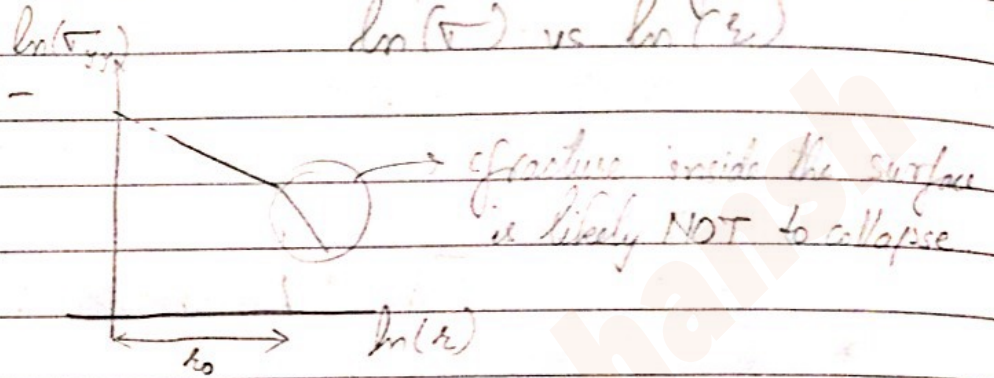 ln(σyy) ln(σ) vs ln(r)
fracture inside the surface
is likely NOT to collapse
ln(r)
r₀
hansh